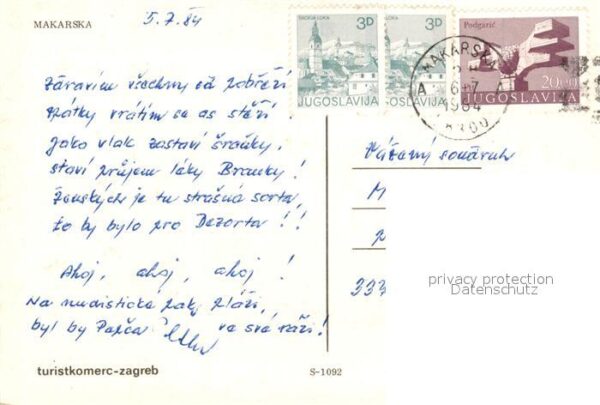 MAKARSKA
5.7.84
ŠKOFJA LOKA
3D
JUGOSLAVIJA
3D
JUGOSLAVIJA
Podgarić
20
JUGOSLAVIJA
MAKARSKA
6-7
1984
Zdravím všechny od pobřeží
zpátky vrátím se as stěží!
Jako vlak zastaví šrouby,
staví průjem láky Branky!
Ženských je tu strašná sorta,
to by bylo pro Dezorta!!
Ahoj, ahoj, ahoj!
Na nudistické pak pláži,
byl by Papča ve své ráži!
Vážený soudruh
M
333
privacy protection
Datenschutz
turistkomerc-zagreb
S-1092